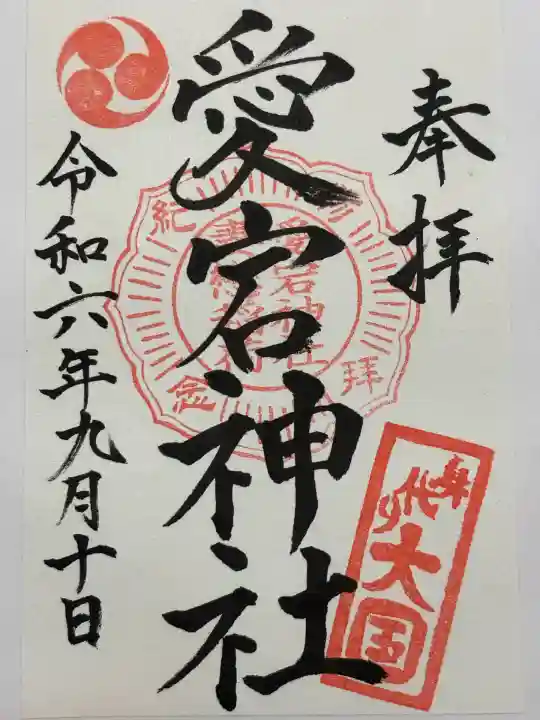 奉拝
愛宕神社
令和六年九月十日
参拝
紀念
愛宕神社
身代り大国